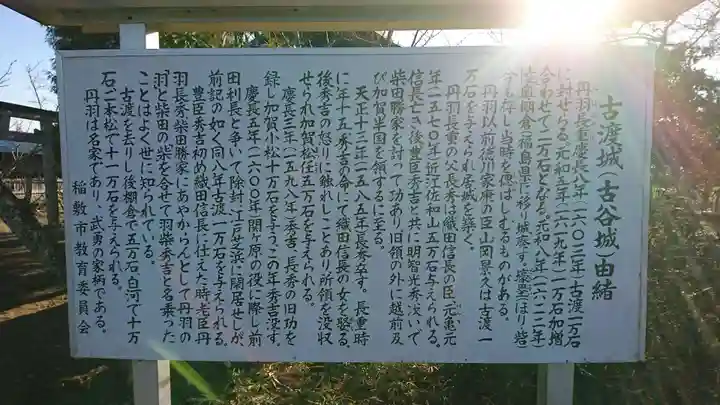 古渡城(古谷城)由緒
丹羽長重慶長八年(一六〇三年)古渡一万石
に封せらる。元和五年(一六一九年)一万石加増
合わせて二万石となる。元和八年(一六二二年)
陸奥棚倉(福島県)に移り城廃す。壕塁(ほり砦)
今も存し当時を偲ばしむるものがある。
丹羽以前徳川家康の臣山岡景久は古渡一
万石を与えられ居城を築く。
丹羽長重の父長秀は織田信長の臣、元亀元
年(一五七〇年)近江佐和山五万石与えられる。
信長亡き後豊臣秀吉と共に明智光秀次いで
柴田勝家を討って功あり旧領の外に越前及
び加賀半国を領するに至る。
天正十三年(一五八五年)長秀卒す。長重時
に年十五、秀吉の命にて織田信長の女を娶る。
後秀吉の怒りに触れしことあり所領を没収
せられ加賀松任五万石を与えられる。
慶長三年(一五九八年)秀吉、長秀の旧功を
録し加賀小松十万石を与う。この年秀吉没す。
慶長五年(一六〇〇年)関ヶ原の役に際し前
田利長と争いて除封、江戸芝浜に閑居せしが
前記の如く同八年古渡一万石を与えられる。
豊臣秀吉初め織田信長に仕えた時、老臣丹
羽長秀、柴田勝家にあやからんとして丹羽の
羽と柴田の柴を合せて羽柴秀吉と名乗った
ことはよく世に知られている。
古渡を去りし後棚倉で五万石、白河で十万
石、二本松で十一万石を与えられる。
丹羽は名家であり、武勇の家柄である。
稲敷市教育委員会